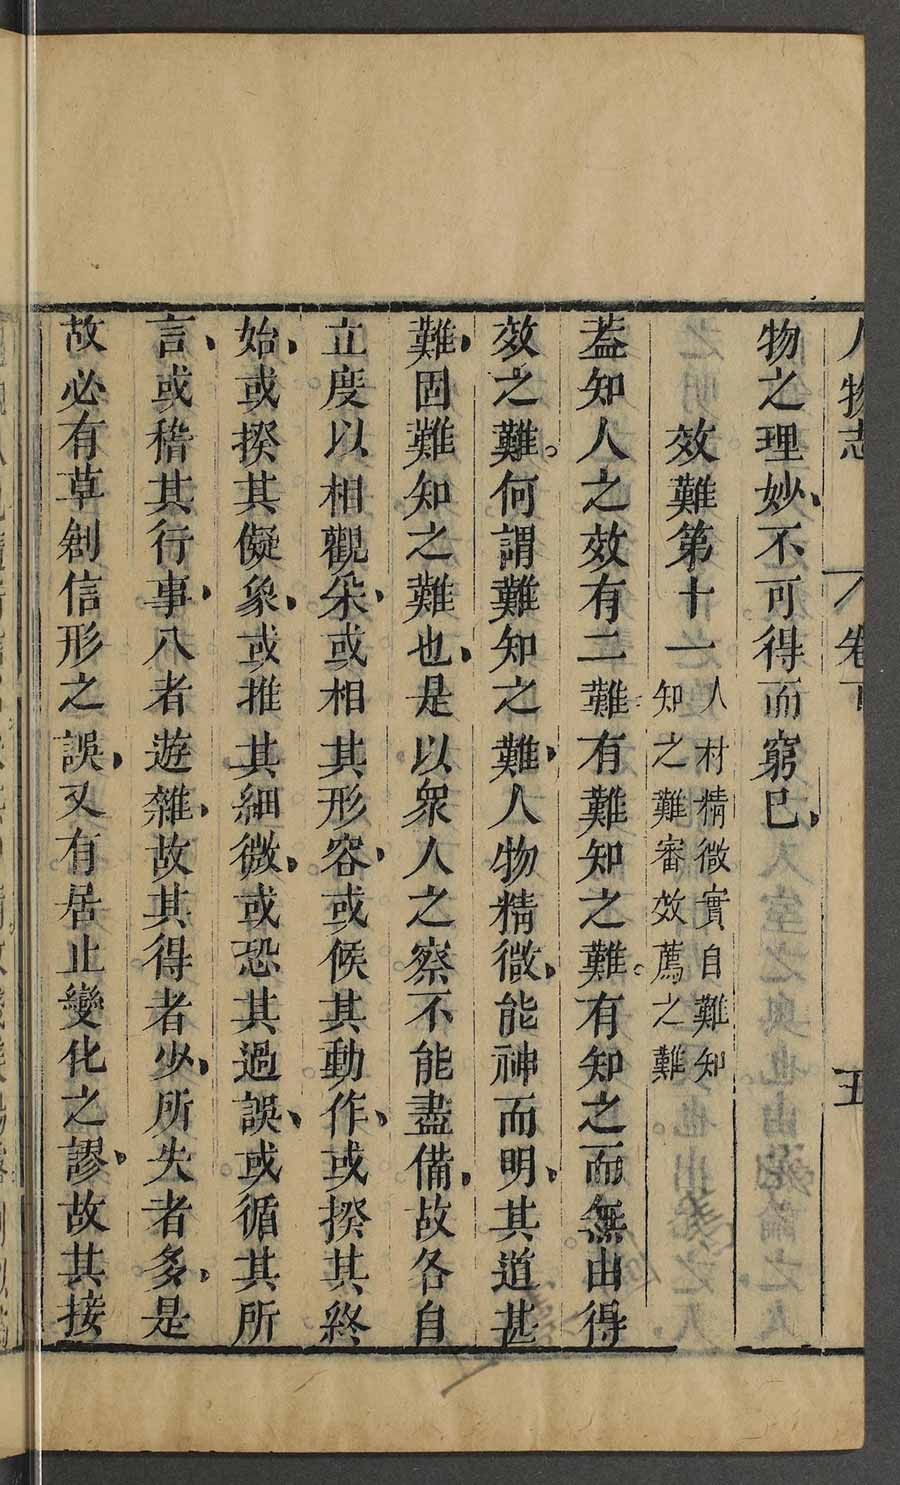 人物志 卷下 五
物之理妙、不可得而窮已、
效難第十一
人材精微實自難知
知之難審效薦之難
葢知人之效有二難有難知之難。有知之而無由得
效之難。何謂難知之難、人物精微、能神而明、其道甚
難、固難知之難也、是以衆人之察不能盡備、故各自
立度以相觀采、或相其形容、或候其動作、或揆其終
始、或揆其儗象、或推其細微、或恐其過誤、或循其所
言、或稽其行事、八者遊雜、故其得者少、所失者多、是
故必有草剏信形之誤、又有居止變化之謬、故其接